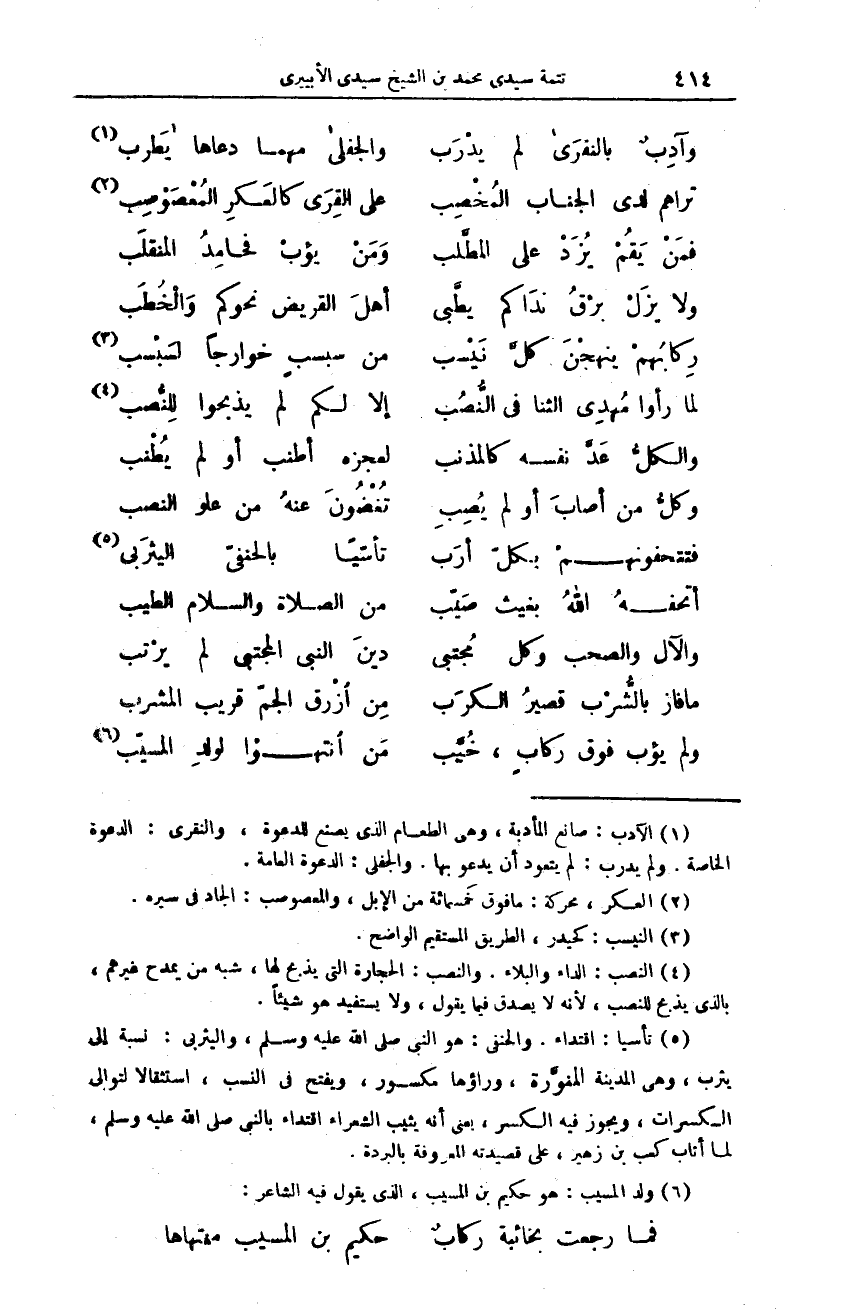 ٤١٤ تتمة سيدى محمد بن الشيخ سيدى الأبييرى
وآدِبٌ بالنقرَىٰ لم يدْرَب والجفلىٰ مهمـا دعاها يَطرب (١)
تراهم لدى الجنـاب المُخْصِب على القِرَى كالعَـكرِ المُعْصَوْصِب (٢)
فمَنْ يَقُمْ يُزَدْ على المطَّلب وَمَنْ يؤبْ فحـامِدُ المنقلَب
ولا يزَلْ برْقُ نداكم يطَّبى أهلَ القريض نحوكم وَالْخُطَب
رِكابُهمْ ينهجْنَ كلَّ نَيْسب من سبسبٍ خوارجاً لسَبْسب (٣)
لما رأوا مُهدِى الثنا فى النُّصْب إلا لـكم لم يذبحوا للِنُّصب (٤)
والـكلُّ عَدَّ نفسـه كالمذنب لعجزه أطنب أو لم يُطْنب
وكلُّ من أصابَ أو لم يُصِبِ تُغْضُونَ عنهُ من علو النصب
فتتحفونهـــمْ بـكلّ أرَب تأسّيًـا بالحنفىّ اليثرَبى (٥)
أتحفـــهُ اللهُ بغيث صَيّب من الصـلاة والسـلام الطيب
والآل والصحب وكل مُجتبى دينَ النبى المجتبى لم يرْتب
مافاز بالشُّرْب قصيرُ الـكرَب مِن أزْرق الجمّ قريب المشرب
ولم يؤب فوق ركابٍ ، خُيَّب مَن أنتهـــوْا لولدِ المسيّب (٦)
(١) الآدب : صانع المأدبة ، وهى الطعـام الذى يصنع للدعوة ، والنقرى : الدعوة
الخاصة . ولم يدرب : لم يتعود أن يدعو بها . والجفلى : الدعوة العامة .
(٢) العـكر ، محركة : مافوق خمسمائة من الإبل ، والمعصوصب : الجاد فى سيره .
(٣) النيسب : كحيدر ، الطريق المستقيم الواضح .
(٤) النصب : الداء والبلاء . والنصب : الحجارة التى يذبح لها ، شبه من يمدح غيرهم ،
بالذى يذبح للنصب ، لأنه لا يصدق فيما يقول ، ولا يستفيد هو شيئاً .
(٥) تأسيا : اقتداء . والحنفى : هو النبى صلى الله عليه وسـلم ، واليثربى : نسبة إلى
يثرب ، وهى المدينة المنوَّرة ، وراؤها مكسـور ، ويفتح فى النسب ، استثقالا لتوالى
الـكسرات ، ويجوز فيه الـكسر ، يعنى أنه يثيب الشعراء اقتداء بالنبى صلى الله عليه وسلم ،
لمـا أثاب كعب بن زهير ، على قصيدته المعروفة بالبردة .
(٦) ولد المسيب : هو حكيم بن المسيب ، الذى يقول فيه الشاعر :
فمـا رجعت بخائبة ركابٌ حكيم بن المسيب منتهاها